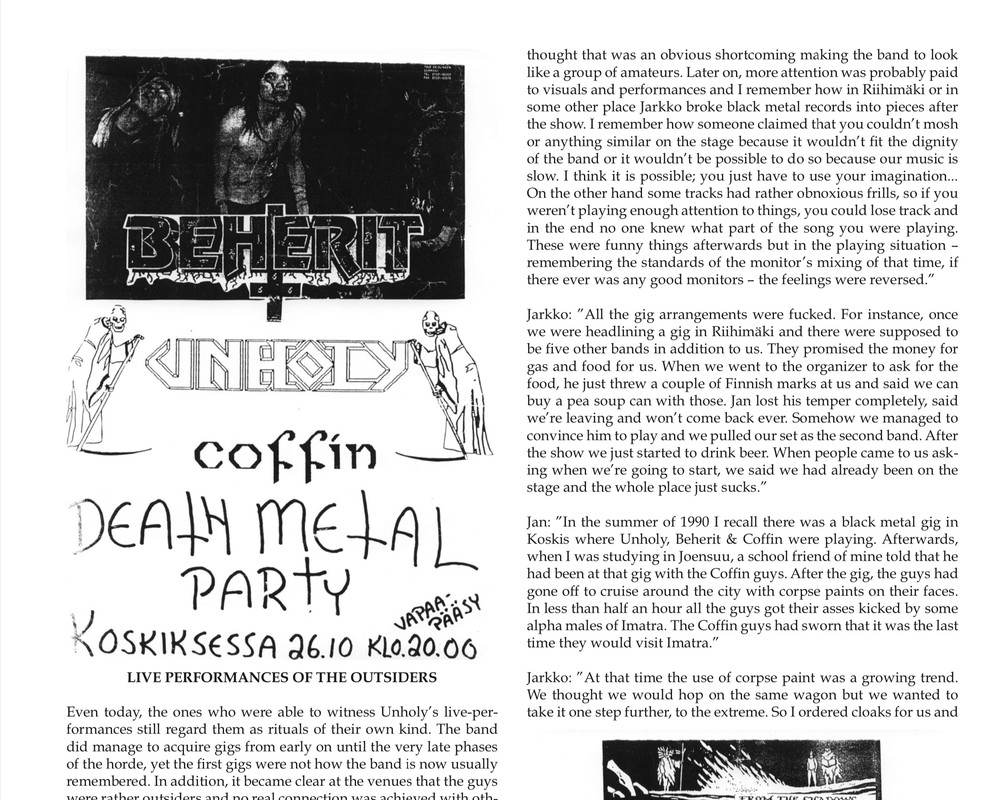 BEHERIT
UNHOLY
coffin
DEATH METAL
PARTY
VAPAA-
PÄÄSY
KOSKIKSESSA 26.10 KLO.20.00
LIVE PERFORMANCES OF THE OUTSIDERS
Even today, the ones who were able to witness Unholy’s live-per-
formances still regard them as rituals of their own kind. The band
did manage to acquire gigs from early on until the very late phases
of the horde, yet the first gigs were not how the band is now usually
remembered. In addition, it became clear at the venues that the guys
were rather outsiders and no real connection was achieved with oth-
thought that was an obvious shortcoming making the band to look
like a group of amateurs. Later on, more attention was probably paid
to visuals and performances and I remember how in Riihimäki or in
some other place Jarkko broke black metal records into pieces after
the show. I remember how someone claimed that you couldn’t mosh
or anything similar on the stage because it wouldn’t fit the dignity
of the band or it wouldn’t be possible to do so because our music is
slow. I think it is possible; you just have to use your imagination...
On the other hand some tracks had rather obnoxious frills, so if you
weren’t playing enough attention to things, you could lose track and
in the end no one knew what part of the song you were playing.
These were funny things afterwards but in the playing situation –
remembering the standards of the monitor’s mixing of that time, if
there ever was any good monitors – the feelings were reversed.”
Jarkko: ”All the gig arrangements were fucked. For instance, once
we were headlining a gig in Riihimäki and there were supposed to
be five other bands in addition to us. They promised the money for
gas and food for us. When we went to the organizer to ask for the
food, he just threw a couple of Finnish marks at us and said we can
buy a pea soup can with those. Jan lost his temper completely, said
we’re leaving and won’t come back ever. Somehow we managed to
convince him to play and we pulled our set as the second band. After
the show we just started to drink beer. When people came to us ask-
ing when we’re going to start, we said we had already been on the
stage and the whole place just sucks.”
Jan: ”In the summer of 1990 I recall there was a black metal gig in
Koskis where Unholy, Beherit & Coffin were playing. Afterwards,
when I was studying in Joensuu, a school friend of mine told that he
had been at that gig with the Coffin guys. After the gig, the guys had
gone off to cruise around the city with corpse paints on their faces.
In less than half an hour all the guys got their asses kicked by some
alpha males of Imatra. The Coffin guys had sworn that it was the last
time they would visit Imatra.”
Jarkko: ”At that time the use of corpse paint was a growing trend.
We thought we would hop on the same wagon but we wanted to
take it one step further, to the extreme. So I ordered cloaks for us and
FROM THE SHADOWS